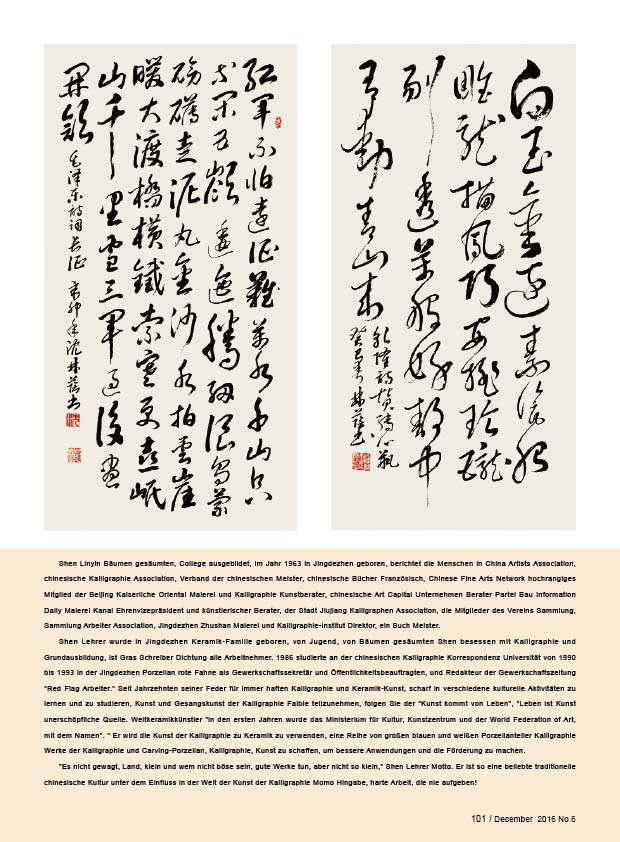 紅軍不怕遠征難萬水千山只
等閒五嶺逶迤騰細浪烏蒙
磅礴走泥丸金沙水拍雲崖
暖大渡橋橫鐵索寒更喜岷
山千里雪三軍過後盡
開顏
毛澤東詩詞長征 辛卯年沈林蔭書
白玉金邊素瓷胎
雕龍描鳳巧安排玲瓏
剔透萬般好靜中
有動青山來
乾隆詩贊
林蔭書
Shen Linyin Bäumen gesäumten, College ausgebildet, im Jahr 1963 in Jingdezhen geboren, berichtet die Menschen in China Artists Association,
chinesische Kalligraphie Association, Verband der chinesischen Meister, chinesische Bücher Französisch, Chinese Fine Arts Network hochrangiges
Mitglied der Beijing Kaiserliche Oriental Malerei und Kalligraphie Kunstberater, chinesische Art Capital Unternehmen Berater Partei Bau Information
Daily Malerei Kanal Ehrenvizepräsident und künstlerischer Berater, der Stadt Jiujiang Kalligraphen Association, die Mitglieder des Vereins Sammlung,
Sammlung Arbeiter Association, Jingdezhen Zhushan Malerei und Kalligraphie-Institut Direktor, ein Buch Meister.
Shen Lehrer wurde in Jingdezhen Keramik-Familie geboren, von Jugend, von Bäumen gesäumten Shen besessen mit Kalligraphie und
Grundausbildung, ist Gras Schreiber Dichtung alle Arbeitnehmer. 1986 studierte an der chinesischen Kalligraphie Korrespondenz Universität von 1990
bis 1993 in der Jingdezhen Porzellan rote Fahne als Gewerkschaftssekretär und Öffentlichkeitsbeauftragten, und Redakteur der Gewerkschaftszeitung
"Red Flag Arbeiter." Seit Jahrzehnten seiner Feder für immer haften Kalligraphie und Keramik-Kunst, scharf in verschiedene kulturelle Aktivitäten zu
lernen und zu studieren, Kunst und Gesangskunst der Kalligraphie Faible teilzunehmen, folgen Sie der "Kunst kommt von Leben", "Leben ist Kunst
unerschöpfliche Quelle. Weltkeramikkünstler "in den ersten Jahren wurde das Ministerium für Kultur, Kunstzentrum und der World Federation of Art,
mit dem Namen". " Er wird die Kunst der Kalligraphie zu Keramik zu verwenden, eine Reihe von großen blauen und weißen Porzellanteller Kalligraphie
Werke der Kalligraphie und Carving-Porzellan, Kalligraphie, Kunst zu schaffen, um bessere Anwendungen und die Förderung zu machen.
"Es nicht gewagt, Land, klein und wem nicht böse sein, gute Werke tun, aber nicht so klein," Shen Lehrer Motto. Er ist so eine beliebte traditionelle
chinesische Kultur unter dem Einfluss in der Welt der Kunst der Kalligraphie Momo Hingabe, harte Arbeit, die nie aufgeben!
101 / December 2016 No.6